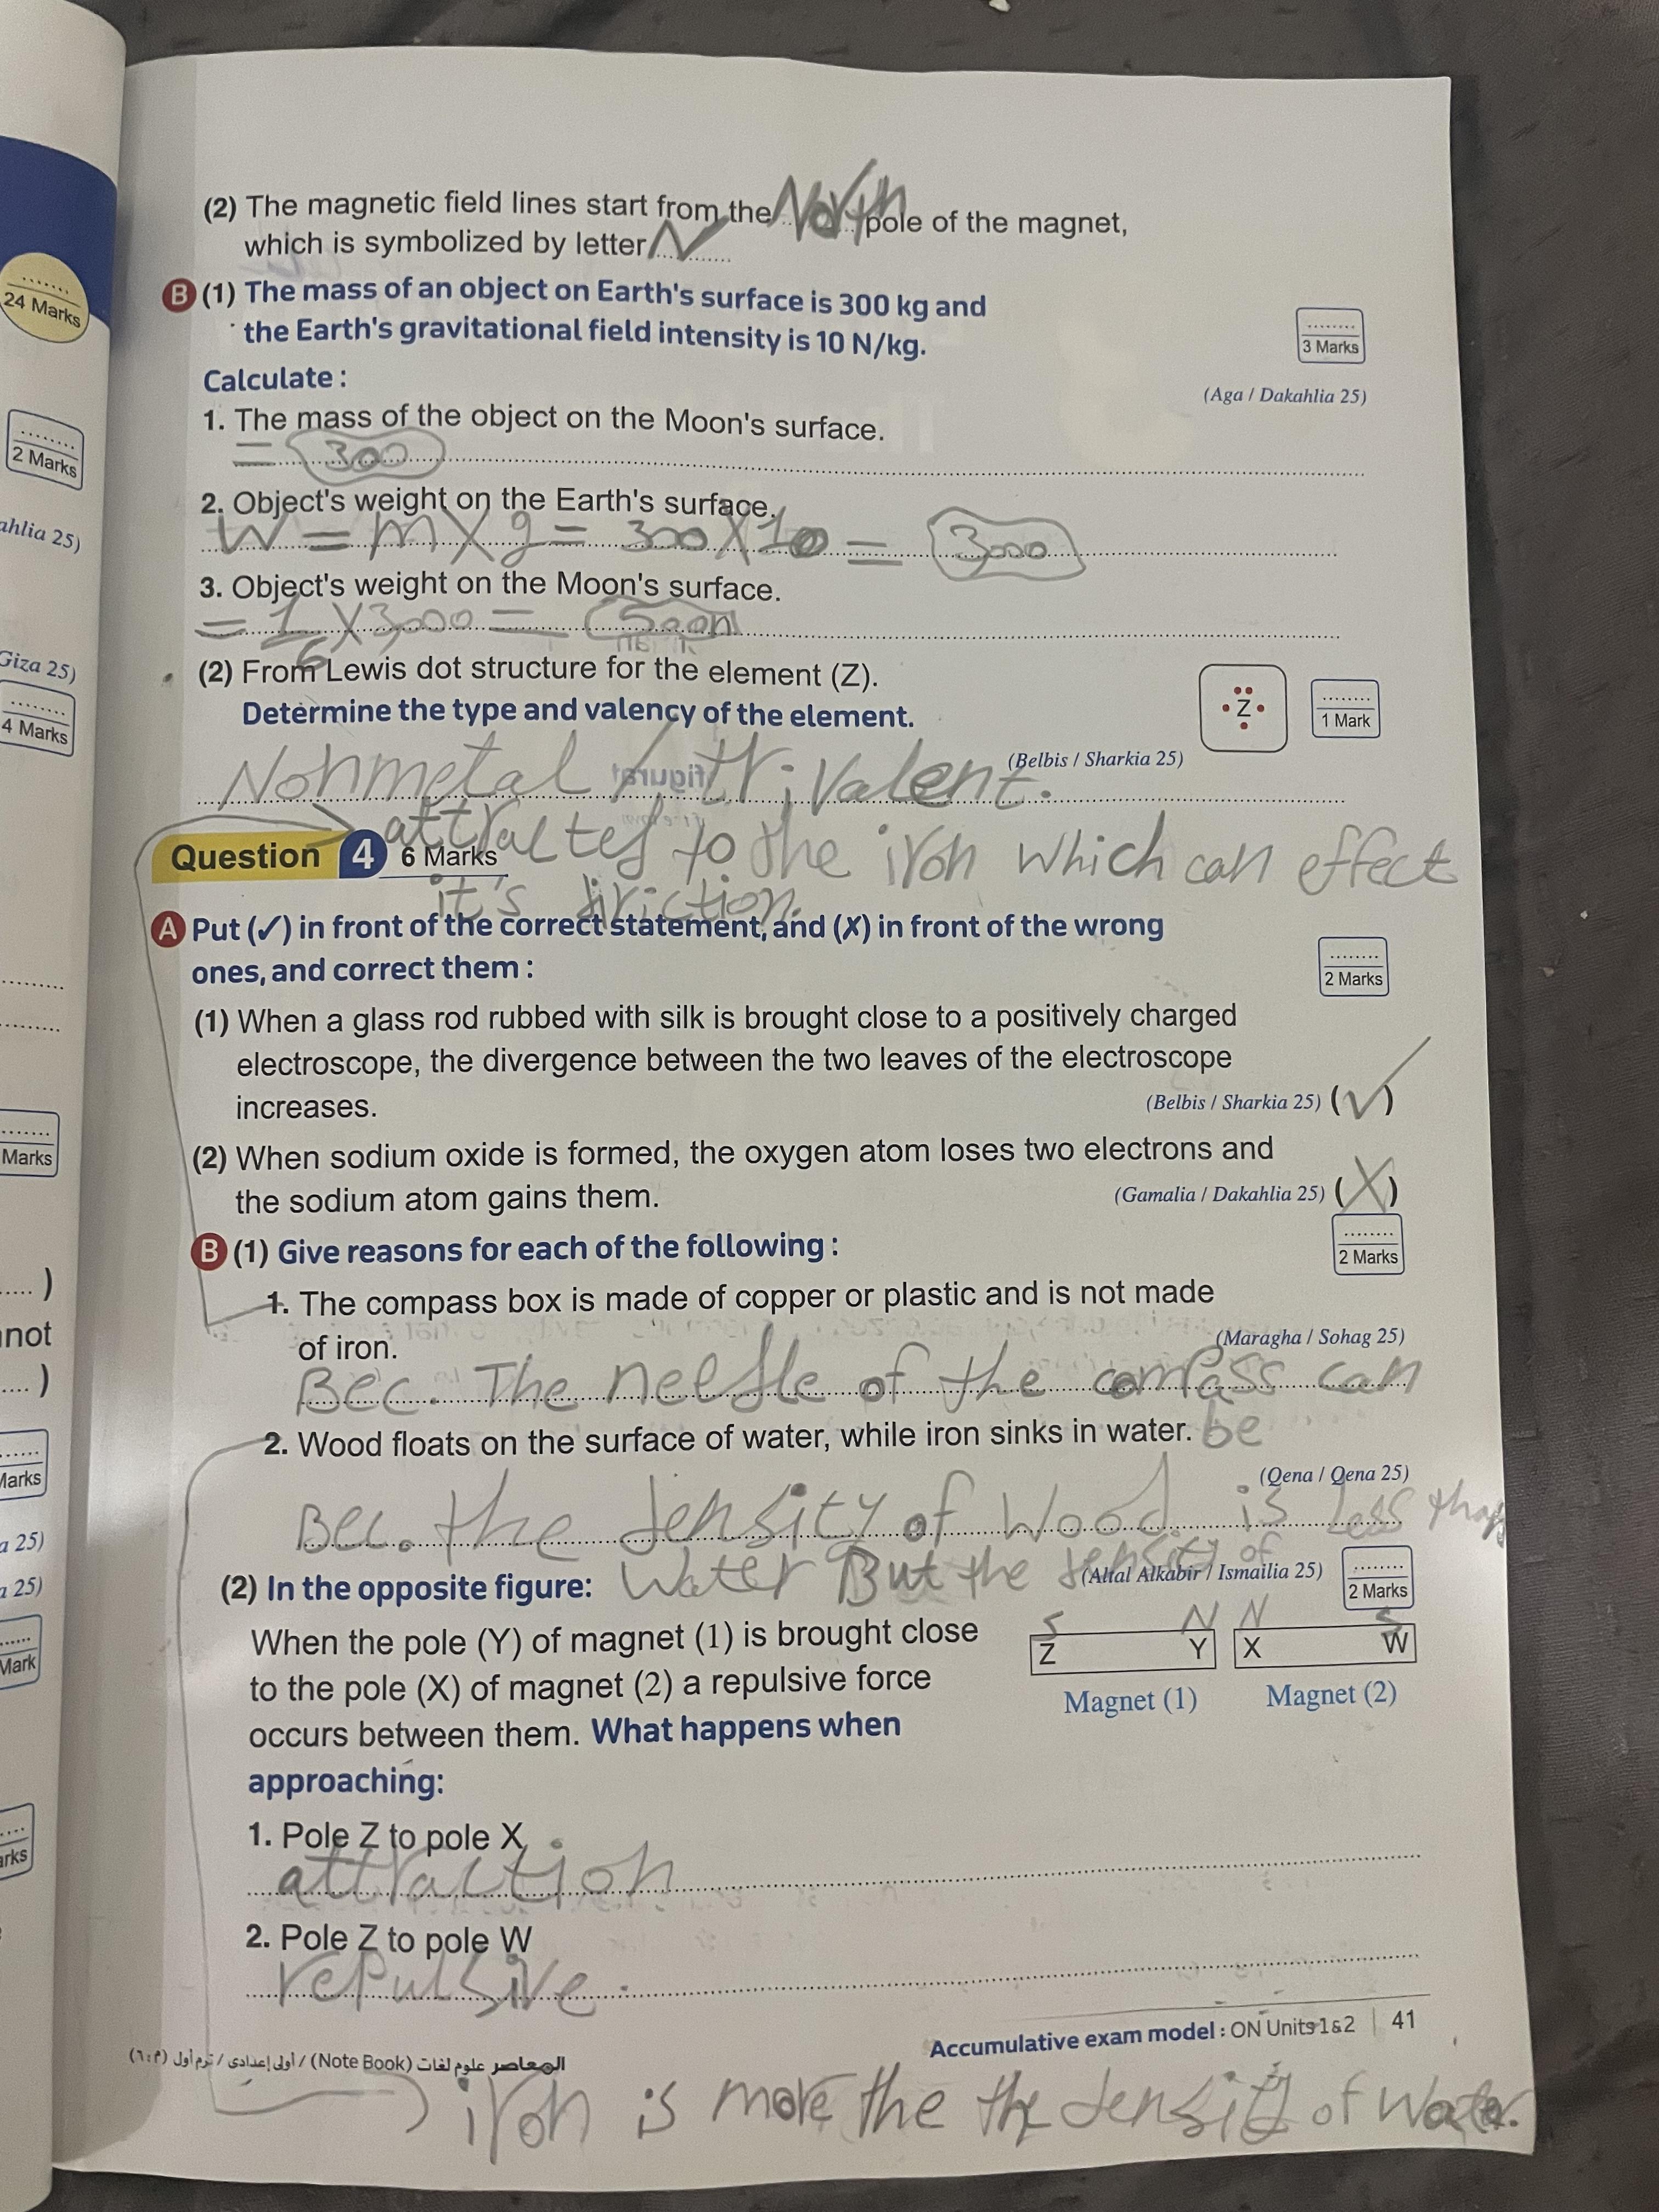 (2) The magnetic field lines start from the North pole of the magnet,
which is symbolized by letter N
B (1) The mass of an object on Earth's surface is 300 kg and
the Earth's gravitational field intensity is 10 N/kg.
3 Marks
Calculate :
(Aga / Dakahlia 25)
1. The mass of the object on the Moon's surface.
= 300
2. Object's weight on the Earth's surface.
W = m X g = 300 X 10 = 3000
3. Object's weight on the Moon's surface.
= 1/6 X 3,000 = 500n
(2) From Lewis dot structure for the element (Z).
Z
1 Mark
Determine the type and valency of the element.
(Belbis / Sharkia 25)
Nonmetal / trivalent.
attracted to the iron which can effect
Question 4 6 Marks
it's diriction.
A Put (✓) in front of the correct statement, and (X) in front of the wrong
ones, and correct them :
2 Marks
(1) When a glass rod rubbed with silk is brought close to a positively charged
electroscope, the divergence between the two leaves of the electroscope
increases.
(Belbis / Sharkia 25) (✓)
(2) When sodium oxide is formed, the oxygen atom loses two electrons and
the sodium atom gains them.
(Gamalia / Dakahlia 25) (X)
B (1) Give reasons for each of the following :
2 Marks
1. The compass box is made of copper or plastic and is not made
of iron.
(Maragha / Sohag 25)
Bec. The needle of the compass can
be
2. Wood floats on the surface of water, while iron sinks in water.
(Qena / Qena 25)
Bec. the density of Wood is less than
Water But the density of
(2) In the opposite figure:
(Altal Alkabir / Ismailia 25)
2 Marks
When the pole (Y) of magnet (1) is brought close
to the pole (X) of magnet (2) a repulsive force
occurs between them. What happens when
approaching:
S N N S
Z Y X W
Magnet (1) Magnet (2)
1. Pole Z to pole X
attraction
2. Pole Z to pole W
repulsive.
Accumulative exam model : ON Units 1&2 | 41
المعاصر علوم لغات (Note Book) / أولى إعدادى / ترم أول (م : ٦)
iron is more the the density of Water.
24 Marks
2 Marks
ahlia 25)
Giza 25)
4 Marks
Marks
)
not
)
Marks
a 25)
a 25)
Mark
arks